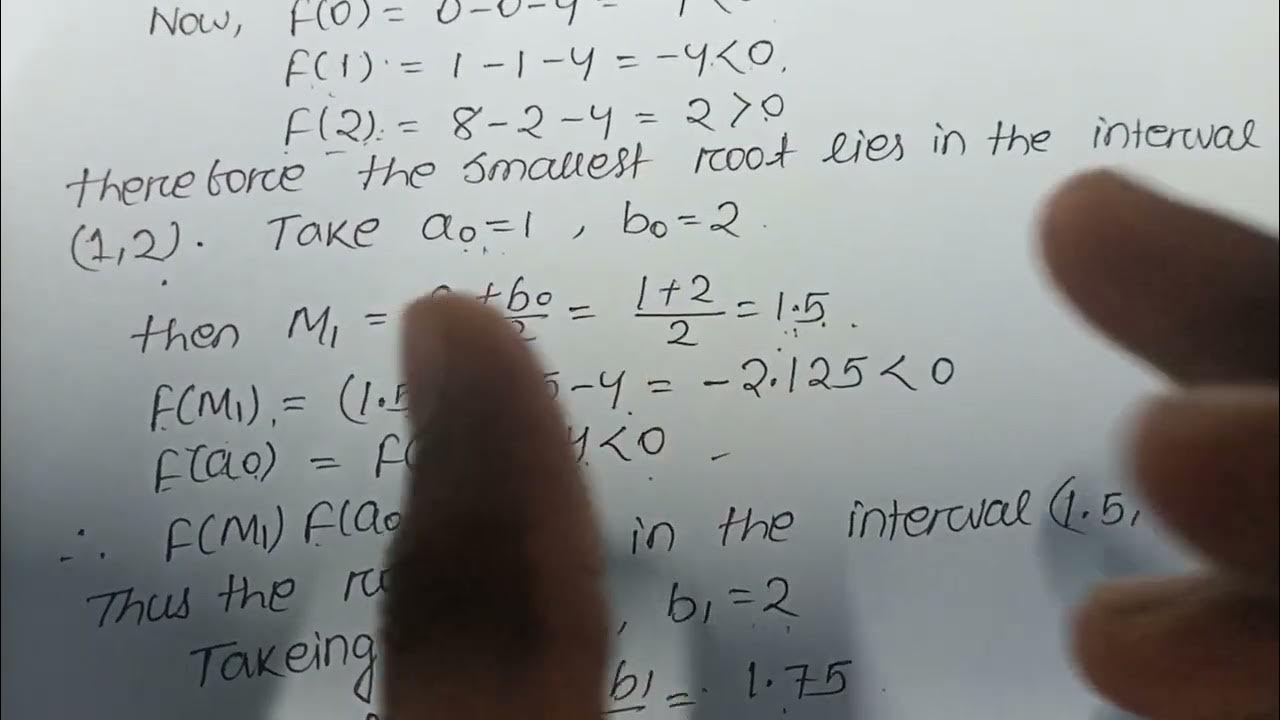 Now, F(0) = 0-0-4 =
F(1) = 1-1-4 = -4<0.
F(2) = 8-2-4 = 2>0
therefore the smallest root lies in the interval
(1,2). Take a₀=1, b₀=2.
then M₁ = +b₀/2 = (1+2)/2 = 1.5.
F(M₁) = (1.5 -4 = -2.125<0
F(a₀) = F( <0
∴ F(M₁) F(a₀
Thus the in the interval (1.5,
Takeing , b₁=2
b₁ = 1.75